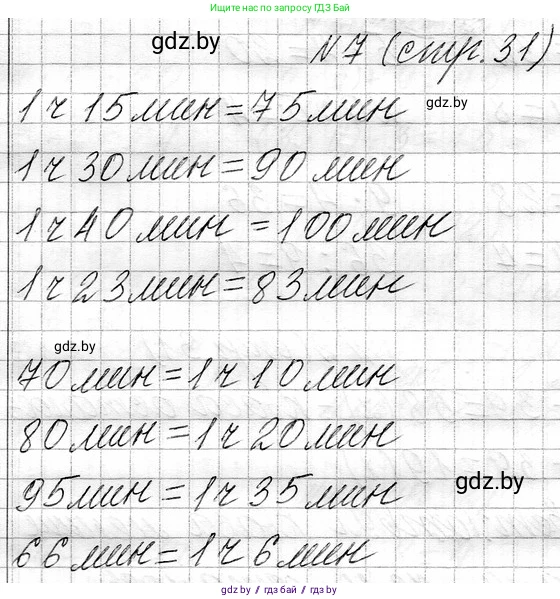 Подпишись по запросу ГДЗ Бай
gdz.by
N7 (стр. 31)
1 ч 15 мин = 75 мин gdz.by
1 ч 30 мин = 90 мин
1 ч 40 мин = 100 мин
1 ч 23 мин = 83 мин
gdz.by
70 мин = 1 ч 10 мин
80 мин = 1 ч 20 мин
95 мин = 1 ч 35 мин gdz.by
66 мин = 1 ч 6 мин
gdz.by / гдз бай / gdz.by